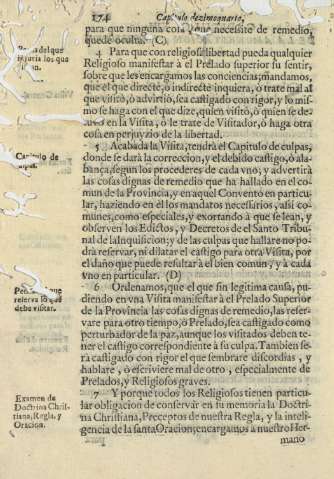 174 Capitulo dezimoquarto,
para que ninguna cosa que necessite de remedio,
quede oculta. (C)
4 Para que con religiosa libertad pueda qualquier
Religioso manifestar à el Prelado superior su sentir,
sobre que les encargamos las conciencias; mandamos,
que el que directè, ò indirectè inquiera, ò trate mal al
que visitò, ò advirtiò, sea castigado con rigor, y lo mis-
mo se haga con el que dize, quien visitò, ò quien se de-
en la Visita, ò le trate de Visitador, ò haga otra
cosa en perjuyzio de la libertad.
Capitulo de
culpas.
5 Acabada la Visita, tendrà el Capitulo de culpas,
donde se darà la correccion, y el debido castigo, ò ala-
bança, segun los procederes de cada vno; y advertirà
las cosas dignas de remedio que ha hallado en el co-
mun de la Provincia, y en aquel Convento en particu-
lar, haziendo en èl los mandatos necessarios, assi co-
munes, como especiales, y exortando à que se lean, y
observen los Edictos, y Decretos de el Santo Tribu-
nal de la Inquisicion; y de las culpas que hallare no po-
drà reservar, ni dilatar el castigo para otra Visita, por
el daño que puede resultar à el bien comun, y à cada
vno en particular. (D)
reserva lo que
debe visitar.
6 Ordenamos, que el que sin legitima causa, pu-
diendo en vna Visita manifestar à el Prelado Superior
de la Provincia las cosas dignas de remedio, las reser-
vare para otro tiempo, ò Prelado, sea castigado como
perturbador de la paz, aunque los visitados deben te-
ner el castigo correspondiente à su culpa. Tambien se-
rà castigado con rigor el que sembrare discordias, y
hablare, ò escriviere mal de otro, especialmente de
Prelados, y Religiosos graves.
Examen de
Doctrina Chris-
tiana, Regla, y
Oracion.
7 Y porque todos los Religiosos tienen particu-
lar obligacion de conservar en su memoria la Doctri-
na Christiana, Preceptos de nuestra Regla, y la inteli-
gencia de la santa Oracion; encargamos à nuestro Her-
mano